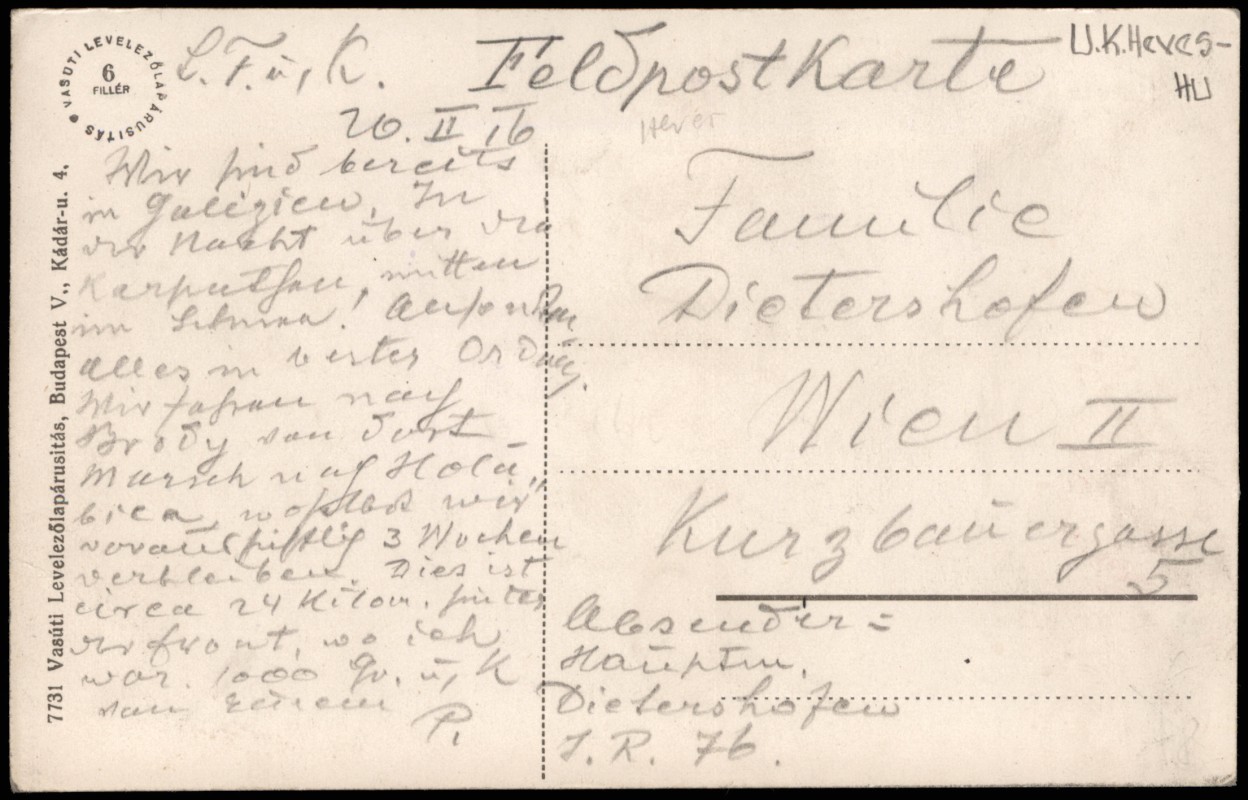 VASÚTI LEVELEZŐLAPÁRUSITÁS
6
FILLÉR
L. F. u, K.
20. II 16
Wir sind bereits
in Galizien. In
der Nacht über die
Karpathen, mitten
im Schnee! Ansonsten
alles in bester Ordng.
Wir fahren nach
Brody von dort
Marsch nach
wir
voraussichtlich 3 Wochen
verbleiben. Dies ist
circa 24 Kilom. hinter
der Front, wo ich
war. 1000 Gr. u, K
von Eurem
P.
7731 Vasúti Levelezőlapárusitás, Budapest V., Kádár-u. 4.
Feldpostkarte
U.K.Heves-
HU
Heves
Familie
Dietershofen
Wien II
Kurzbauergasse
5
Absender:
Hauptm.
Dietershofen
I. R. 76.